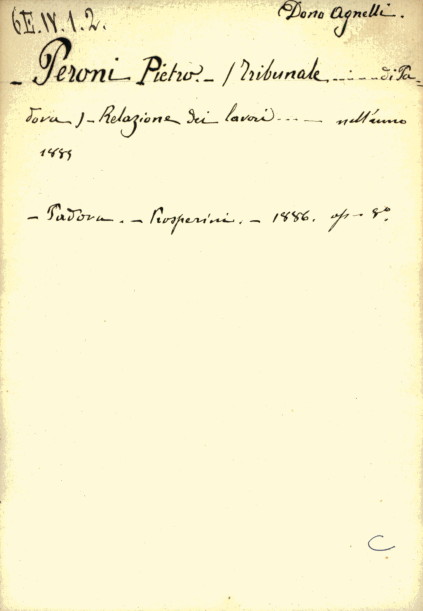 6E.IV.1.2.
Dono Agnelli.
- Peroni Pietro. - / Tribunale ........ di Pa-
dova ) - Relazione dei lavori ........ nell'anno
1885
- Padova. - Prosperini. - 1886. op - 8°.
C